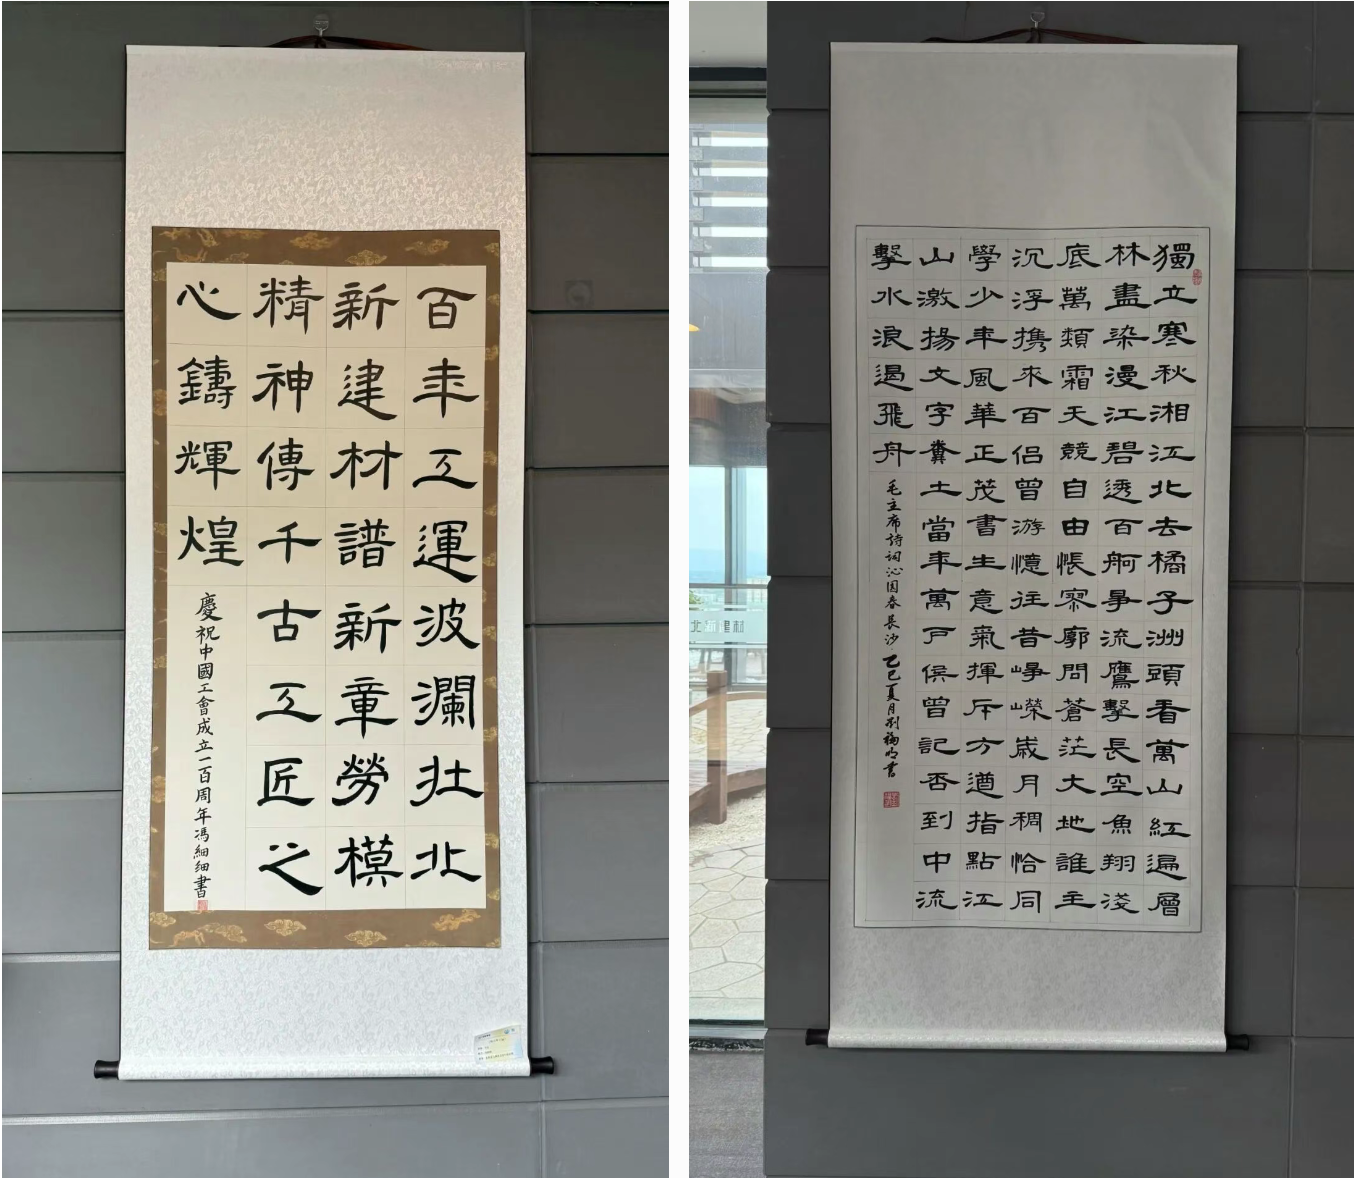 百年工運波瀾壮北
新建材譜新章勞模
精神傳千古工匠之
心鑄輝煌
慶祝中國工會成立一百周年馮細細書
獨立寒秋湘江北去橘子洲頭看萬山紅遍層
林盡染漫江碧透百舸爭流鷹擊長空魚翔淺
底萬類霜天競自由悵寥廓問蒼茫大地誰主
沉浮携來百侶曾游憶往昔崢嶸歲月稠恰同
學少年風華正茂書生意氣揮斥方遒指點江
山激揚文字糞土當年萬戶侯曾記否到中流
擊水浪遏飛舟
毛主席詩詞沁园春長沙 乙巳夏月劉福明書
北新建材